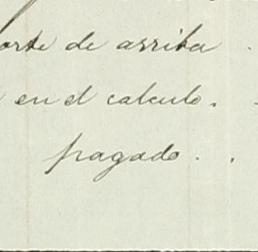 de arriba
en el calculo.
pagado.